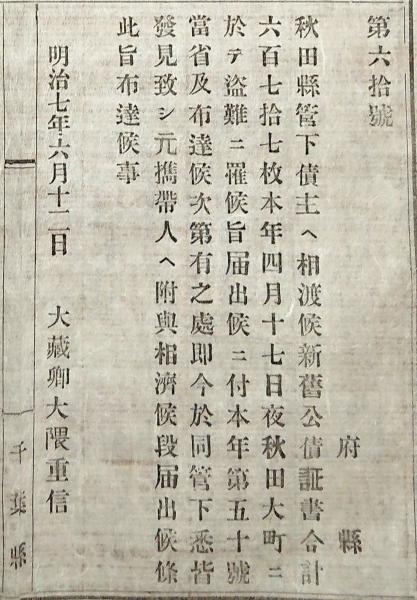 第六拾號
府縣
秋田縣管下債主ヘ相渡候新舊公債証書合計
六百七拾七枚本年四月十七日夜秋田大町ニ
於テ盜難ニ罹候旨届出候ニ付本年第五十號
當省及布達候次第有之處即今於同管下悉皆
發見致シ元攜帶人ヘ附與相濟候段届出候條
此旨布達候事
明治七年六月十二日　大藏卿大隈重信
千葉縣